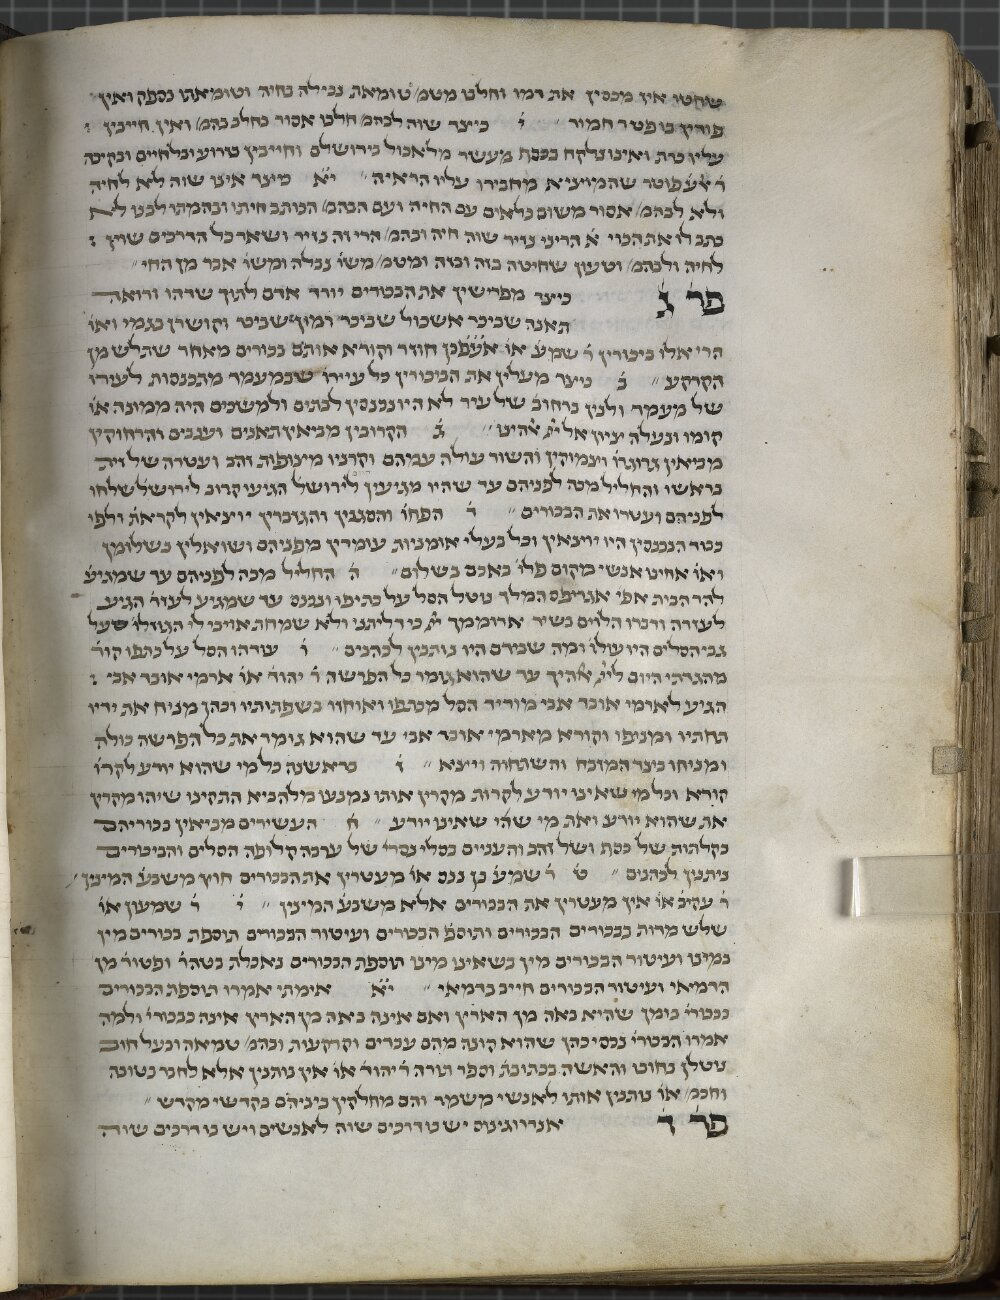 שחטו אין מכסין את דמו וחלבו מטמ' טומאת נבילה כחיה וטומאתו בספק ואין
פודין בו פטר חמור ״ י כיצד שוה לבהמ' חלבו אסור כחלב בהמ' ואין חייבין
עליו כרת ואינו נלקח בכסף מעשר מלאכול בירושלם וחייבין בזרוע ובלחיים ובקיבה
ר' אלעז' פוטר שהמוציא מחבירו עליו הראיה ״ יא כיצד אינו שוה לא לחיה
ולא לבהמ' אסור משום כלאים עם החיה ועם הבהמ' הכותב חיתו ובהמתו לבנו לא
כתב לו את הכוי א' הריני נזיר שזה חיה ובהמ' הרי זה נזיר ושאר כל הדרכים שוין
לחיה ולבהמ' וטעון שחיטה כזה וכזה ומטמ' משו' נבלה ומשו' אבר מן החי ״
פר' ג כיצד מפרישין את הבכורים יורד אדם לתוך שדהו ורואה
תאנה שביכר אשכול שביכר רמון שביכר וקושרן בגמי ואו'
הרי אלו ביכורין ר' שמע' או' אעפ כן חוזר וקורא אותם בכורים מאחר שתלש מן
הקרקע ״ ב כיצד מעלין את הביכורין כל עיירו' שבמעמר מתכנסות לעירו
של מעמר ולנין ברחובה של עיר לא היו נכנסין לבתים ולמשכים היה ממונה או'
קומו ונעלה ציון אל יי' אלהינו ״ ג הקרובין מביאין תאנים וענבים והרחוקין
מביאין גרוגרו' וצמוקין והשור עולה עמהם וקרניו מצופות זהב ועטרה של זית
בראשו והחליל מכה לפניהם עד שהיו מגיעין לירושל' הגיעו קרוב לירושל' שלחו
לפניהם ועטרו את הבכורים ״ ד הפחו' והסגנין והגזברין יוצאין לקראת' ולפי
כבוד הנכנסין היו יוצאין וכל בעלי אומניות עומדין מפניהם ושואלין בשלומן
ואו' אחינו אנשי מקום פלו' באתם בשלום ״ ה החליל מכה לפניהם עד שמגיע'
להר הבית אפי' אגריפס המלך נוטל הסל על כתיפו ונכנס עד שמגיע לעזר' הגיע
לעזרה ודברו הלוים בשיר ארוממך יי' כי דליתני ולא שמחת אויבי לי הגוזלו' שעל
גבי הסלים היו עולו' ומה שבידם היו נותנין לכהנים ״ ו עודהו הסל על כתפו קור'
מהגדתי היום ליי' אלהיך עד שהוא גומר כל הפרשה ר' יהוד' או' ארמי אובד אבי
הגיע לארמי אובד אבי מוריד הסל מכתפו ואוחזו בשפתותיו וכהן מניח את ידיו
תחתיו ומניפו וקורא מארמי אובד אבי עד שהוא גומר את כל הפרשה כולה
ומניחו בצד המזבח והשתחוה ויצא ״ ז בראשנה כל מי שהוא יודע לקרו'
קורא וכל מי שאינו יודע לקרות מקרין אותו נמנעו מלהביא התקינו שיהו מקרין
את שהוא יודע ואת מי שהי' שאינו יודע ״ ח העשירים מביאין בכוריהם
בקלתות של כסף ושל זהב והעניים בסלי נצרי' של ערבה קלופה הסלים והביכורים
ניתנין לכהנים ״ ט ר' שמע' בן ננס או' מעטרין את הבכורים חוץ משבע' המינין
ר' עקיב' או' אין מעטרין את הבכורים אלא משבע' המינין ״ י ר' שמעון או'
שלש מדות בבכורים הבכורים ותוספ' הבכורים ועיטור הבכורים תוספת בכורים מין
במינו ועיטור הבכורים מין בשאינו מינו תוספת הבכורים נאכלת בטהר' ופטור' מן
הדמיאי ועיטור הבכורים חייב בדמאי ״ יא אימתי אמרו תוספת הבכורים
כבכורי' בזמן שהיא באה מן הארץ ואם אינה באה מן הארץ אינה כבכורי' ולמה
אמרו הבכורי' כנכסי כהן שהוא קונה מהם עבדים וקרקעות ובהמ' טמאה ובעל חוב
נוטלן בחובו והאשה בכתובת' וספר תורה ר' יהוד' או' אין נותנין אלא לחבר בטובה
וחכמ' או' נותנין אותו לאנשי משמר והם מחלקין ביניהם כקדשי מקדש ״
פר' ד אנדרוגינוס יש בו דרכים שוה לאנשים ויש בו דרכים שוה